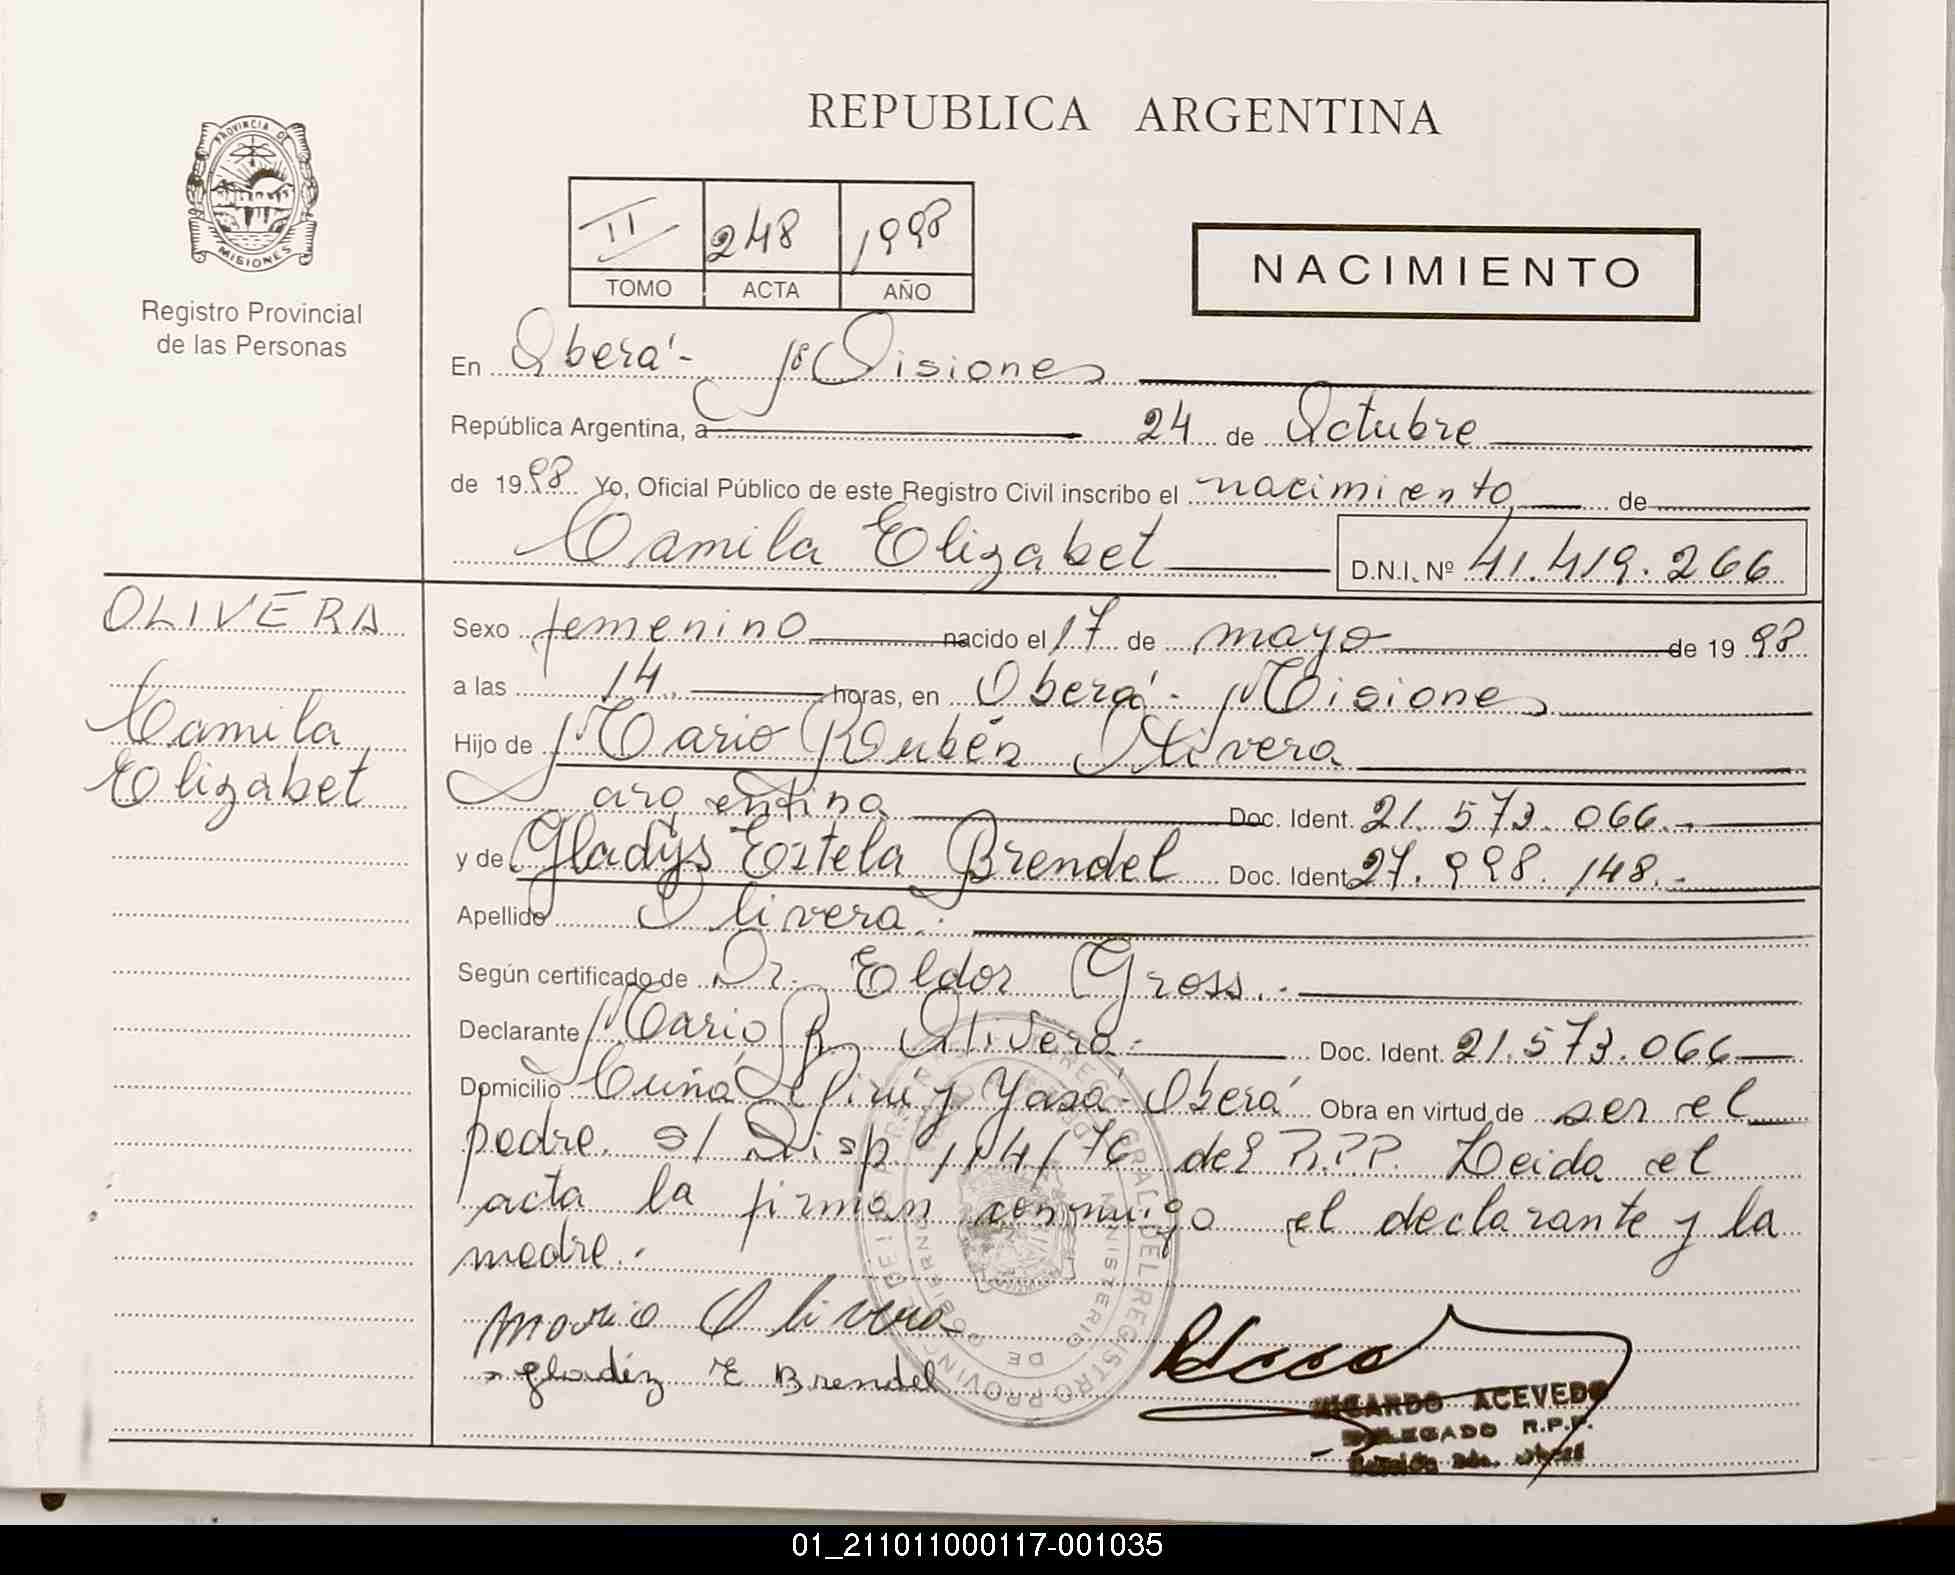 REPUBLICA ARGENTINA
PROVINCIA DE
MISIONES
Registro Provincial
de las Personas
II 248 1998
TOMO ACTA AÑO
NACIMIENTO
En Oberá - Misiones
República Argentina, a 24 de Octubre
de 1998 Yo, Oficial Público de este Registro Civil inscribo el nacimiento de
Camila Elizabet D.N.I. Nº 41.419.266
OLIVERA
Camila
Elizabet
Sexo femenino nacido el 17 de mayo de 1998
a las 14 horas, en Oberá - Misiones
Hijo de Mario Rubén Olivera
argentino Doc. Ident. 21.573.066.-
y de Gladys Estela Brendel Doc. Ident. 27.998.148.-
Apellido Olivera.
Según certificado de Dr. Eldor Gross.-
Declarante Mario R. Olivera.- Doc. Ident. 21.573.066
Domicilio Cuñá Pirú y Yasá - Oberá Obra en virtud de ser el
padre. s/ Disp 114/76 del R.P.P. Leida el
acta la firman conmigo el declarante y la
madre.
Mario Olivera
Gladiz E Brendel
RICARDO ACEVEDO
DELEGADO R.P.P.
01_211011000117-001035